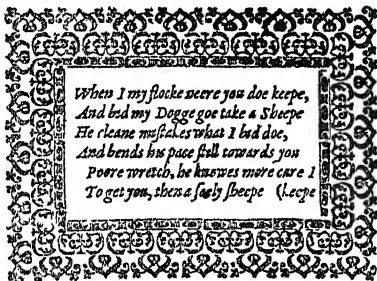 When I my flocke neere you doe keepe,
And bid my Dogge goe take a Sheepe
He cleane mistakes what I bid doe,
And bends his pace still towards you
Poore wretch, he knowes more care I
To get you, then a seely sheepe (keepe